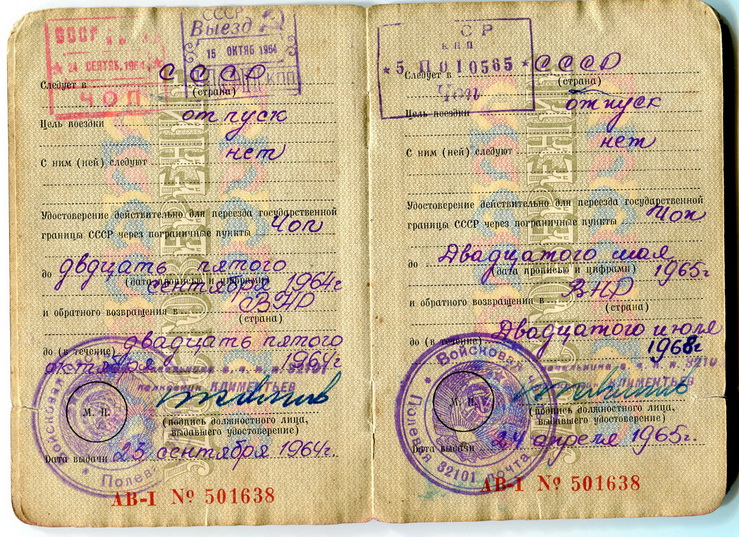 СССР
24 СЕНТЯБ. 1964
ЧОП
СССР
Выезд
15 ОКТЯБ 1964
КПП
Следует в СССР
(страна)
Цель поездки отпуск
С ним (ней) следуют нет
Удостоверение действительно для переезда государственной
границы СССР через пограничные пункты Чоп
до двдцать пятого
(дата прописью и цифрами)
сентября 1964г
и обратного возвращения в ВНР
(страна)
до (в течение) двадцать пятого
октября 1964г
32101
полковник КЛИМЕНТЬЕВ
М. П.
(подпись должностного лица,
выдавшего удостоверение)
Дата выдачи 23 сентября 1964г.
Войсковая
Полев
АВ-I № 501638
СР
КПП
5 П 010565
Чоп
Следует в СССР
(страна)
Цель поездки отпуск
С ним (ней) следуют нет
Удостоверение действительно для переезда государственной
границы СССР через пограничные пункты Чоп
до Двадцатого мая
(дата прописью и цифрами) 1965г
и обратного возвращения в ВНР
(страна)
до (в течение) Двадцатого июля
1968г
начальника в. ч. п. п. 3210
КЛИМЕНТЬЕВ
М. П.
(подпись должностного лица,
выдавшего удостоверение)
Дата выдачи 24 апреля 1965г.
Войсковая
Полевая почта
32101
АВ-I № 501638